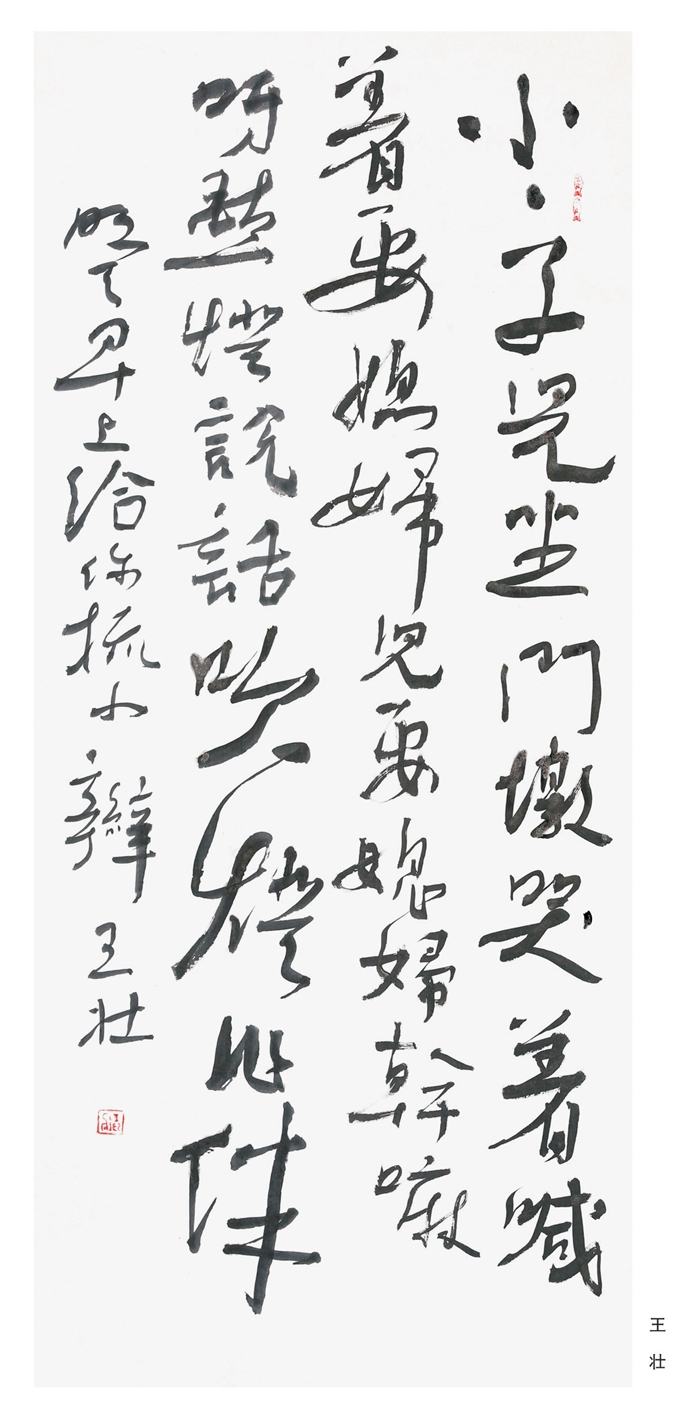 小小子兒坐門墩哭着喊
着要媳婦兒要媳婦幹嘛
呀點燈說話吹燈作伴
明天早上給你梳小辮 王壯
王壮